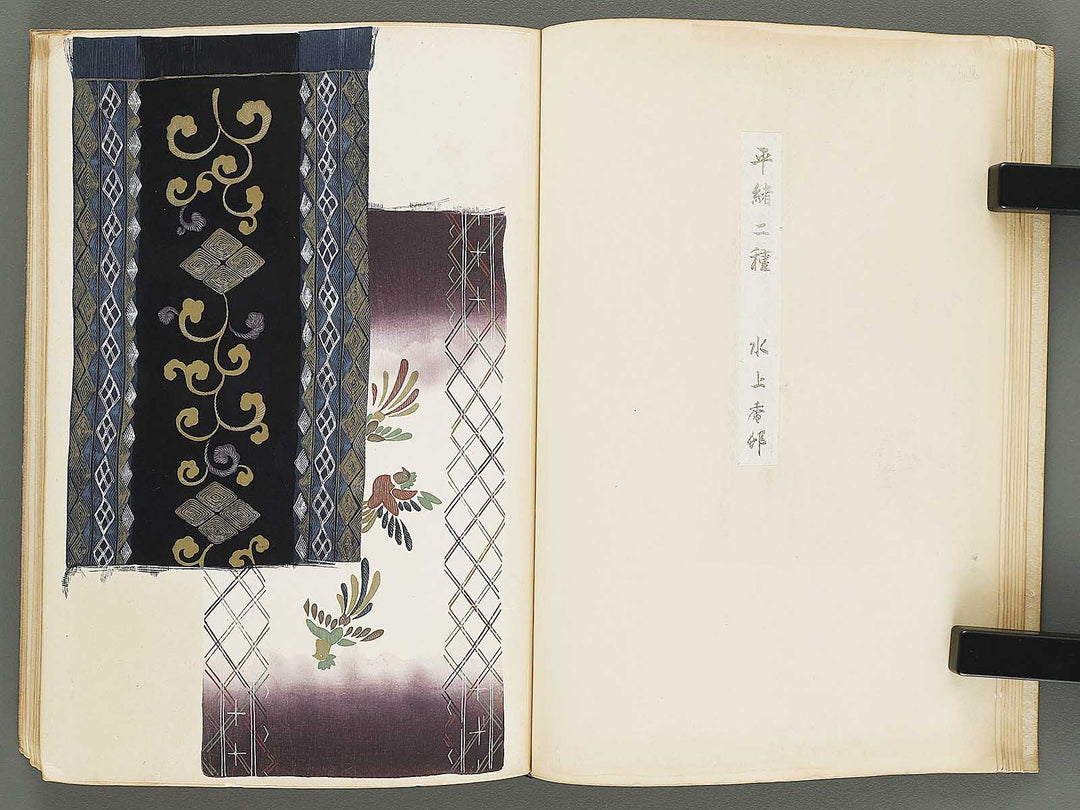 平緒二種　水上香邨